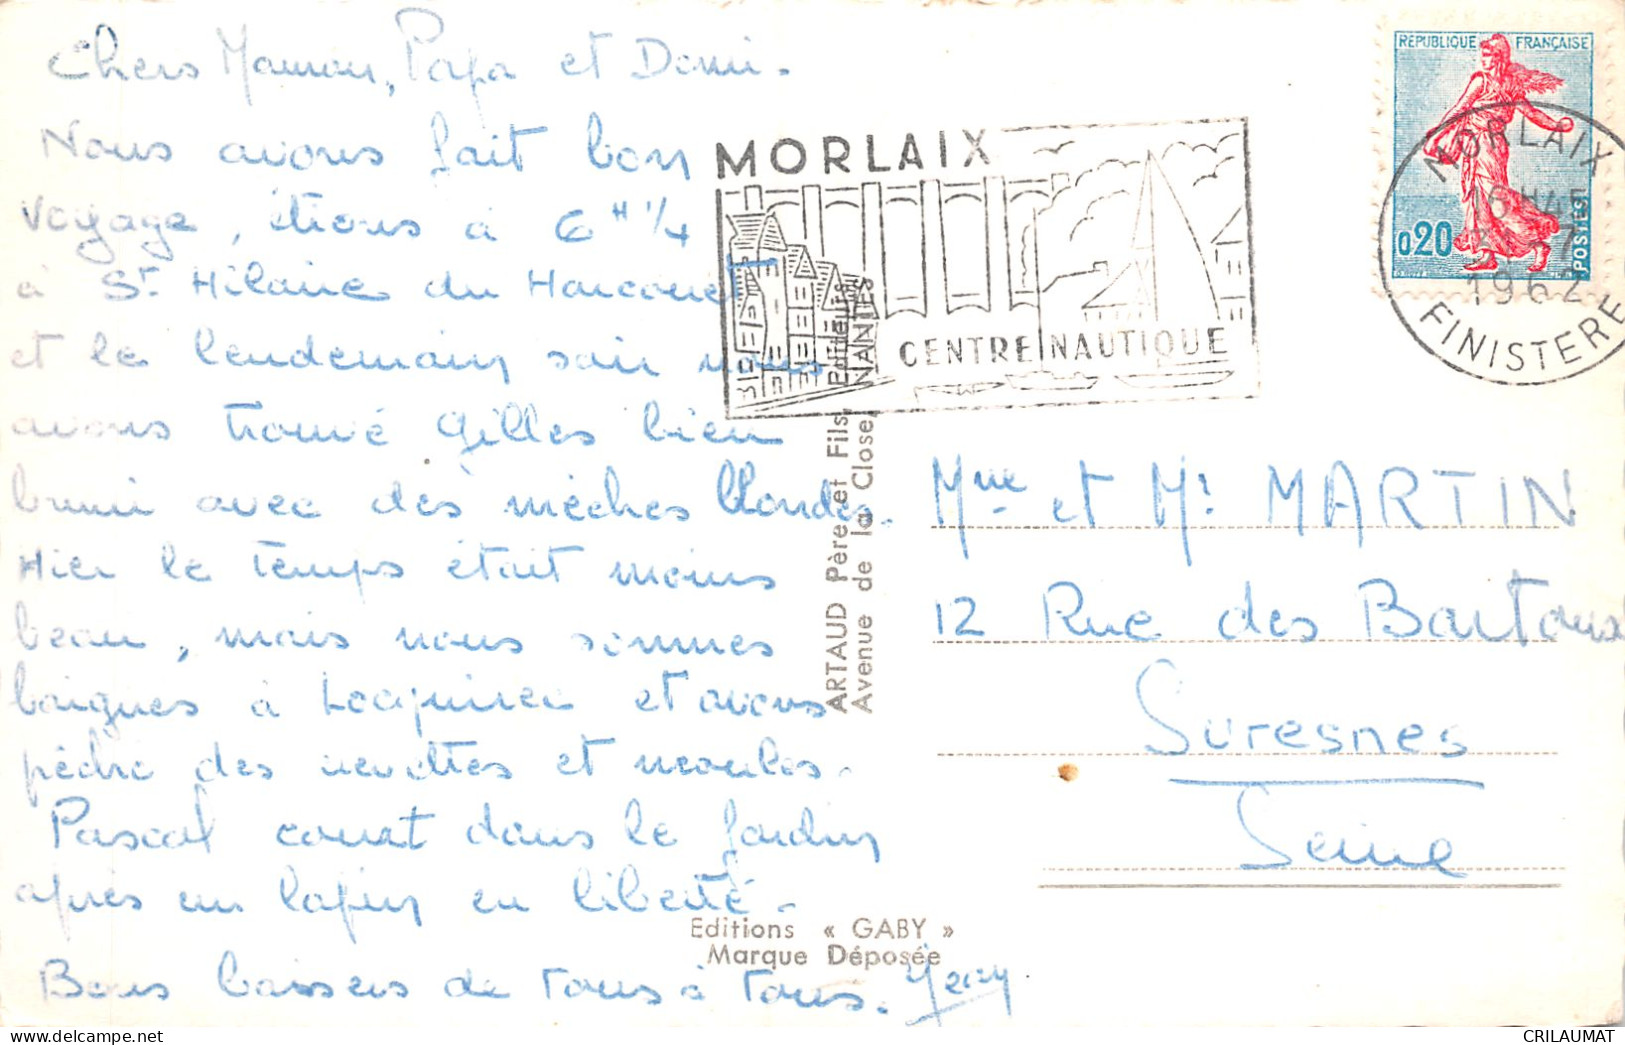 Chers Maman, Papa et Domi.
Nous avons fait bon
voyage, étions à 6H 1/4
à St Hilaire du Harcouet
et le lendemain soir nous
avons trouvé Gilles bien
bruni avec des mèches blondes.
Hier le temps était moins
beau, mais nous sommes
baignés à Locquirec et avons
pêché des crevettes et moules.
Pascal court dans le jardin
après un lapin en liberté.
Bons baisers de tous à tous.
MORLAIX
CENTRE NAUTIQUE
REPUBLIQUE FRANÇAISE
0,20
POSTES
MORLAIX
1962
FINISTERE
ARTAUD Père et Fils, Editeurs
Avenue de la Close, NANTES
Mme et Mr MARTIN
12 Rue des Bartoux
Suresnes
Seine
Editions « GABY »
Marque Déposée
CRILAUMAT